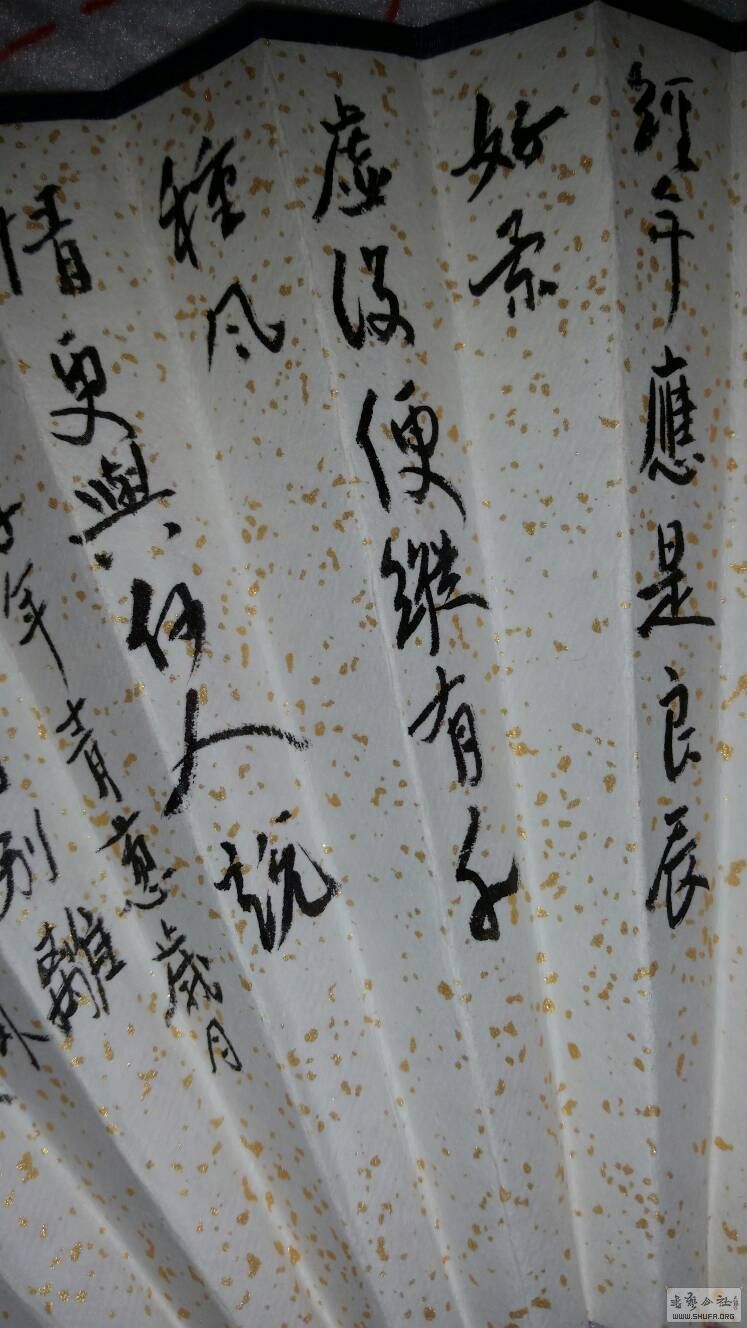 經年應是良辰
好景
虛設便縱有千
種風
情更與何人說
年青蔥歲月
別離
WWW.SHUFA.ORG